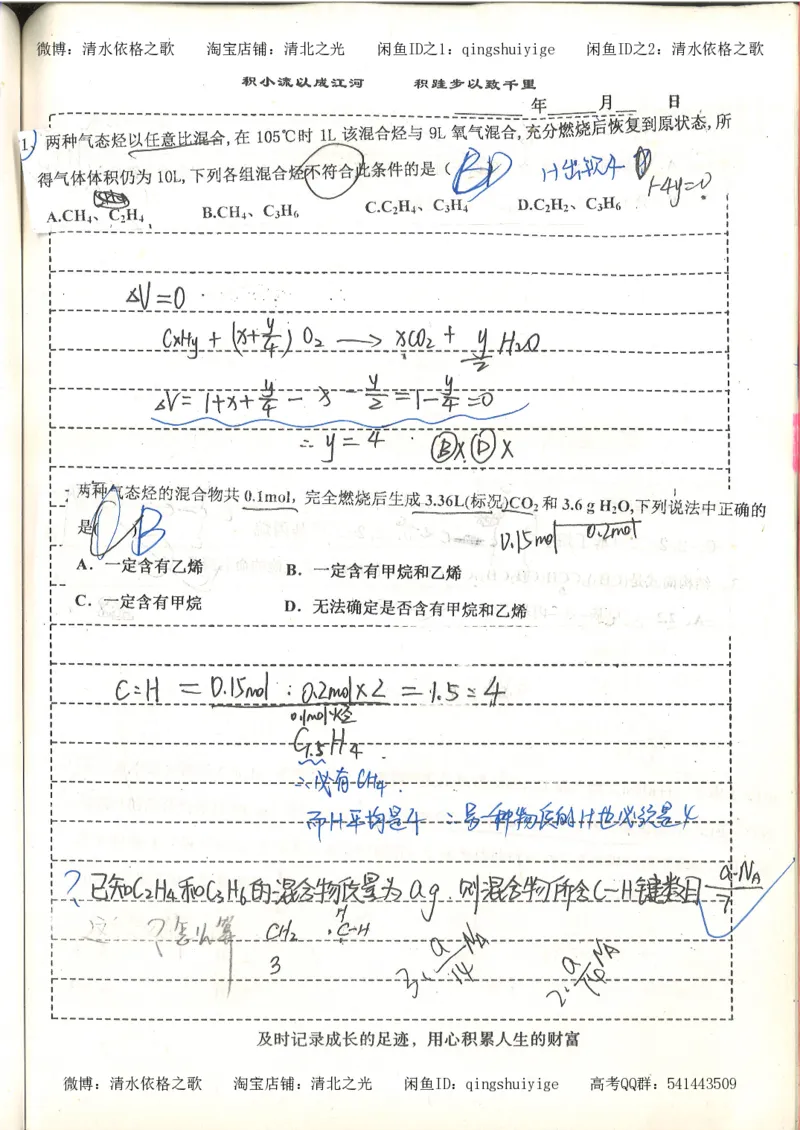 微博：清水依格之歌 淘宝店铺：清北之光 闲鱼ID之1：qingshuiyige 闲鱼ID之2：清水依格之歌
积小流以成江河 积跬步以致千里
年 月 日
1. 两种气态烃以任意比混合,在 105℃时 1L 该混合烃与 9L 氧气混合,充分燃烧后恢复到原状态,所
得气体体积仍为 10L,下列各组混合烃不符合此条件的是（ BD
1-4y=0
A.CH₄、C₂H₄ B.CH₄、C₃H₆ C.C₂H₄、C₃H₄ D.C₂H₂、C₃H₆
ΔV=0
CxHy + (x+y/4) O₂ → xCO₂ + y/2 H₂O
ΔV= 1+x+y/4 - x - y/2 = 1-y/4 =0
∴ y=4 Ⓑ× Ⓓ×
两种气态烃的混合物共 0.1mol，完全燃烧后生成 3.36L(标况)CO₂ 和 3.6 g H₂O,下列说法中正确的
是( ) B 0.15mol 0.2mol
A．一定含有乙烯 B．一定含有甲烷和乙烯
C．一定含有甲烷 D．无法确定是否含有甲烷和乙烯
C:H = 0.15mol : 0.2mol×2 = 1.5:4
0.1mol烃
C₁.₅H₄
∴必有CH₄.
而H平均是4 ∴另一种物质的H也必须是4
? 已知C₂H₄和C₃H₆的混合物质量为 a g，则混合物所含C-H键数目 a·NA/7
这 ?怎么算 CH₂ ·C-H H
3 3× a/14 NA 2× a/14 NA
及时记录成长的足迹，用心积累人生的财富
微博：清水依格之歌 淘宝店铺：清北之光 闲鱼ID：qingshuiyige 高考QQ群：541443509